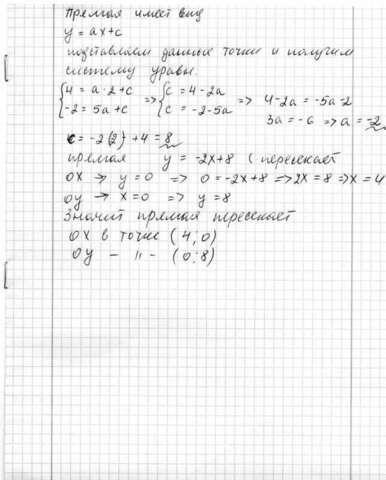 Прямая имеет вид
y = ax + c
подставляем данные точки и получим
систему уравн.
{4 = a·2 + c => {c = 4 - 2a => 4 - 2a = -5a - 2
{-2 = 5a + c {c = -2 - 5a 3a = -6 => a = -2
c = -2(2) + 4 = 8
прямая y = -2x + 8 (пересекает
OX → y = 0 => 0 = -2x + 8 => 2x = 8 => x = 4
OY → x = 0 => y = 8
Значит прямая пересекает
OX в точке (4, 0)
OY — 〃 — (0; 8)